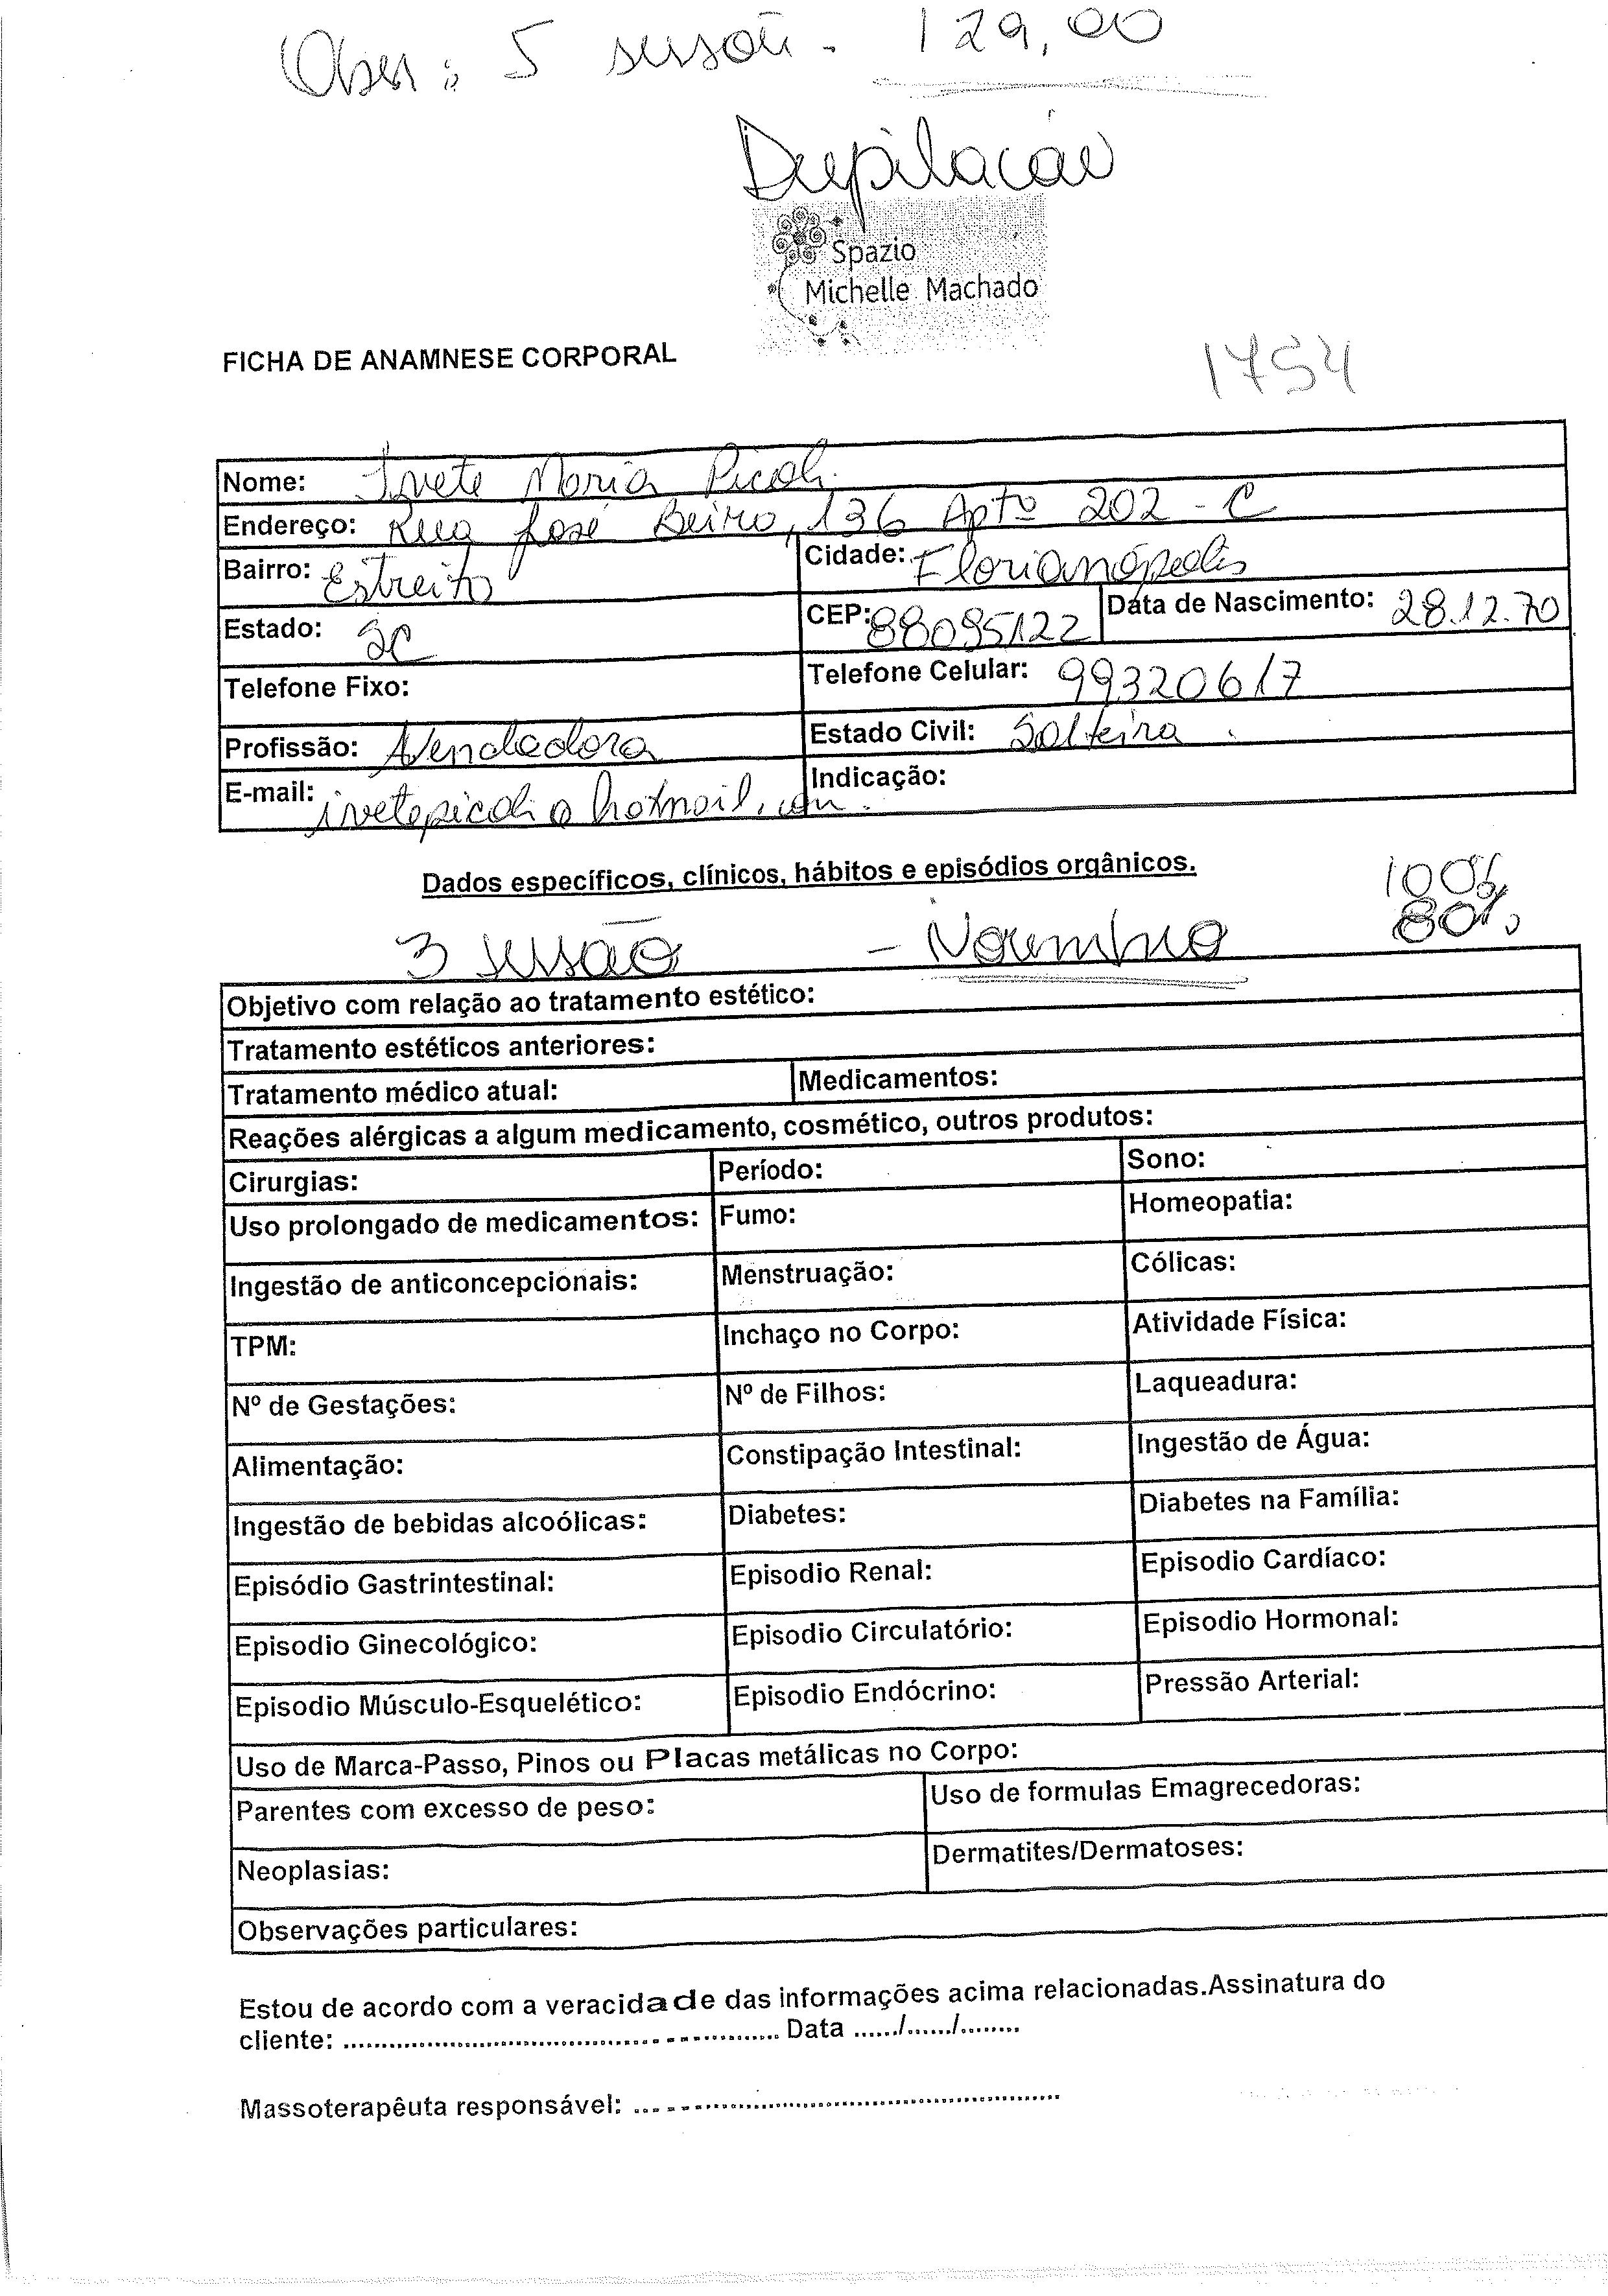 Obser: 5 sessão - 129,00
Depilação
Spazio
Michelle Machado
FICHA DE ANAMNESE CORPORAL
1754
Nome: Ivete Maria Picoli
Endereço: Rua José Beiro, 136 Aptº 202 - C
Bairro: Estreito Cidade: Florianópolis
Estado: SC CEP: 88095122 Data de Nascimento: 28.12.70
Telefone Fixo: Telefone Celular: 99320617
Profissão: Vendedora Estado Civil: Solteira.
E-mail: ivetepicoli@hotmail.com. Indicação:
Dados específicos, clínicos, hábitos e episódios orgânicos.
100%
3 sessão - Novembro 80%
Objetivo com relação ao tratamento estético:
Tratamento estéticos anteriores:
Tratamento médico atual: Medicamentos:
Reações alérgicas a algum medicamento, cosmético, outros produtos:
Cirurgias: Período: Sono:
Uso prolongado de medicamentos: Fumo: Homeopatia:
Ingestão de anticoncepcionais: Menstruação: Cólicas:
TPM: Inchaço no Corpo: Atividade Física:
Nº de Gestações: Nº de Filhos: Laqueadura:
Alimentação: Constipação Intestinal: Ingestão de Água:
Ingestão de bebidas alcoólicas: Diabetes: Diabetes na Família:
Episódio Gastrintestinal: Episodio Renal: Episodio Cardíaco:
Episodio Ginecológico: Episodio Circulatório: Episodio Hormonal:
Episodio Músculo-Esquelético: Episodio Endócrino: Pressão Arterial:
Uso de Marca-Passo, Pinos ou Placas metálicas no Corpo:
Parentes com excesso de peso: Uso de formulas Emagrecedoras:
Neoplasias: Dermatites/Dermatoses:
Observações particulares:
Estou de acordo com a veracidade das informações acima relacionadas.Assinatura do
cliente: ................................................ Data ....../....../........
Massoterapêuta responsável: ................................................